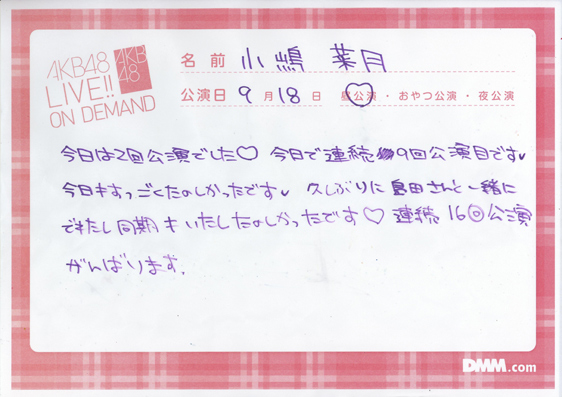 AKB48
LIVE!!
ON DEMAND
AKB
48
名前 小嶋 菜月
公演日 9月18日 昼公演・おやつ公演・夜公演
今日は2回公演でした♡ 今日で連続9回公演目です
今日もすっごくたのしかったです 久しぶりに島田さんと一緒に
できたし同期もいたしたのしかったです♡ 連続16回公演
がんばります.
DMM.com